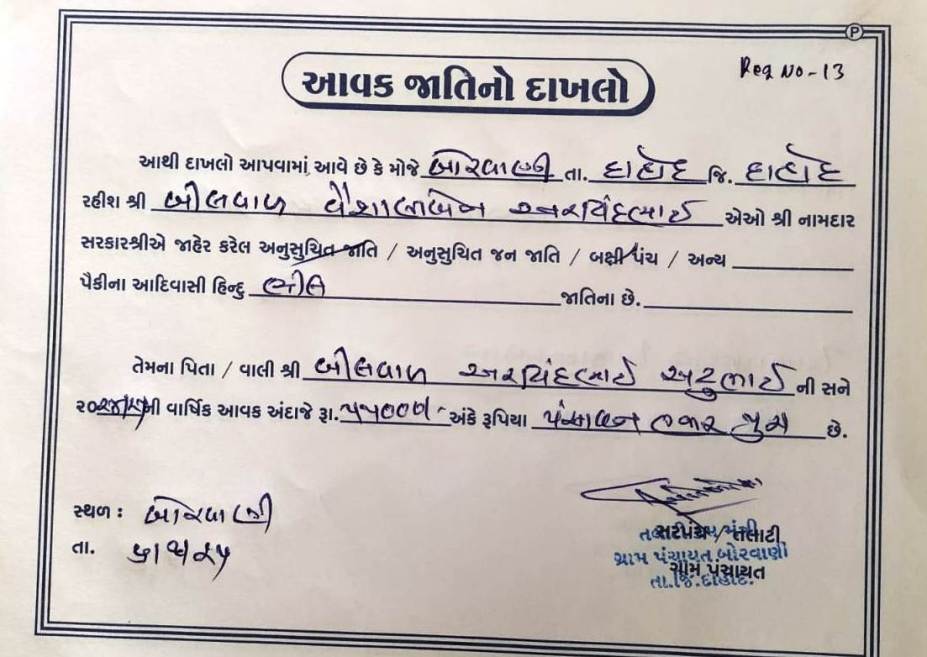 Reg No - 13
આવક જાતિનો દાખલો
આથી દાખલો આપવામાં આવે છે કે મોજે બોરવાણી તા. દાહોદ જિ. દાહોદ
રહીશ શ્રી બીલવાળ વૈશાલીબેન અરવિંદભાઈ એઓ શ્રી નામદાર
સરકારશ્રીએ જાહેર કરેલ અનુસુચિત જાતિ / અનુસુચિત જન જાતિ / બક્ષીપંચ / અન્ય
પૈકીના આદિવાસી હિન્દુ ભીલ જાતિના છે.
તેમના પિતા / વાલી શ્રી બીલવાળ અરવિંદભાઈ ની સને
૨૦ ની વાર્ષિક આવક અંદાજે રૂા. ૫૫૦૦૦ અંકે રૂપિયા પંચાવન હજાર પુરા છે.
સ્થળ : બોરવાણી
તા.
સરપંચ / તલાટી
ગ્રામ પંચાયત બોરવાણી
ગ્રામ પંચાયત
તા.જિ.દાહોદ.